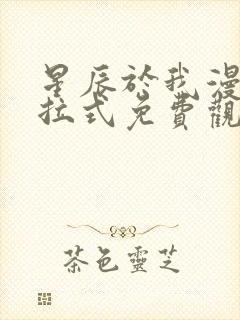 星辰於我漫
拉式免費觀
茶色靈芝